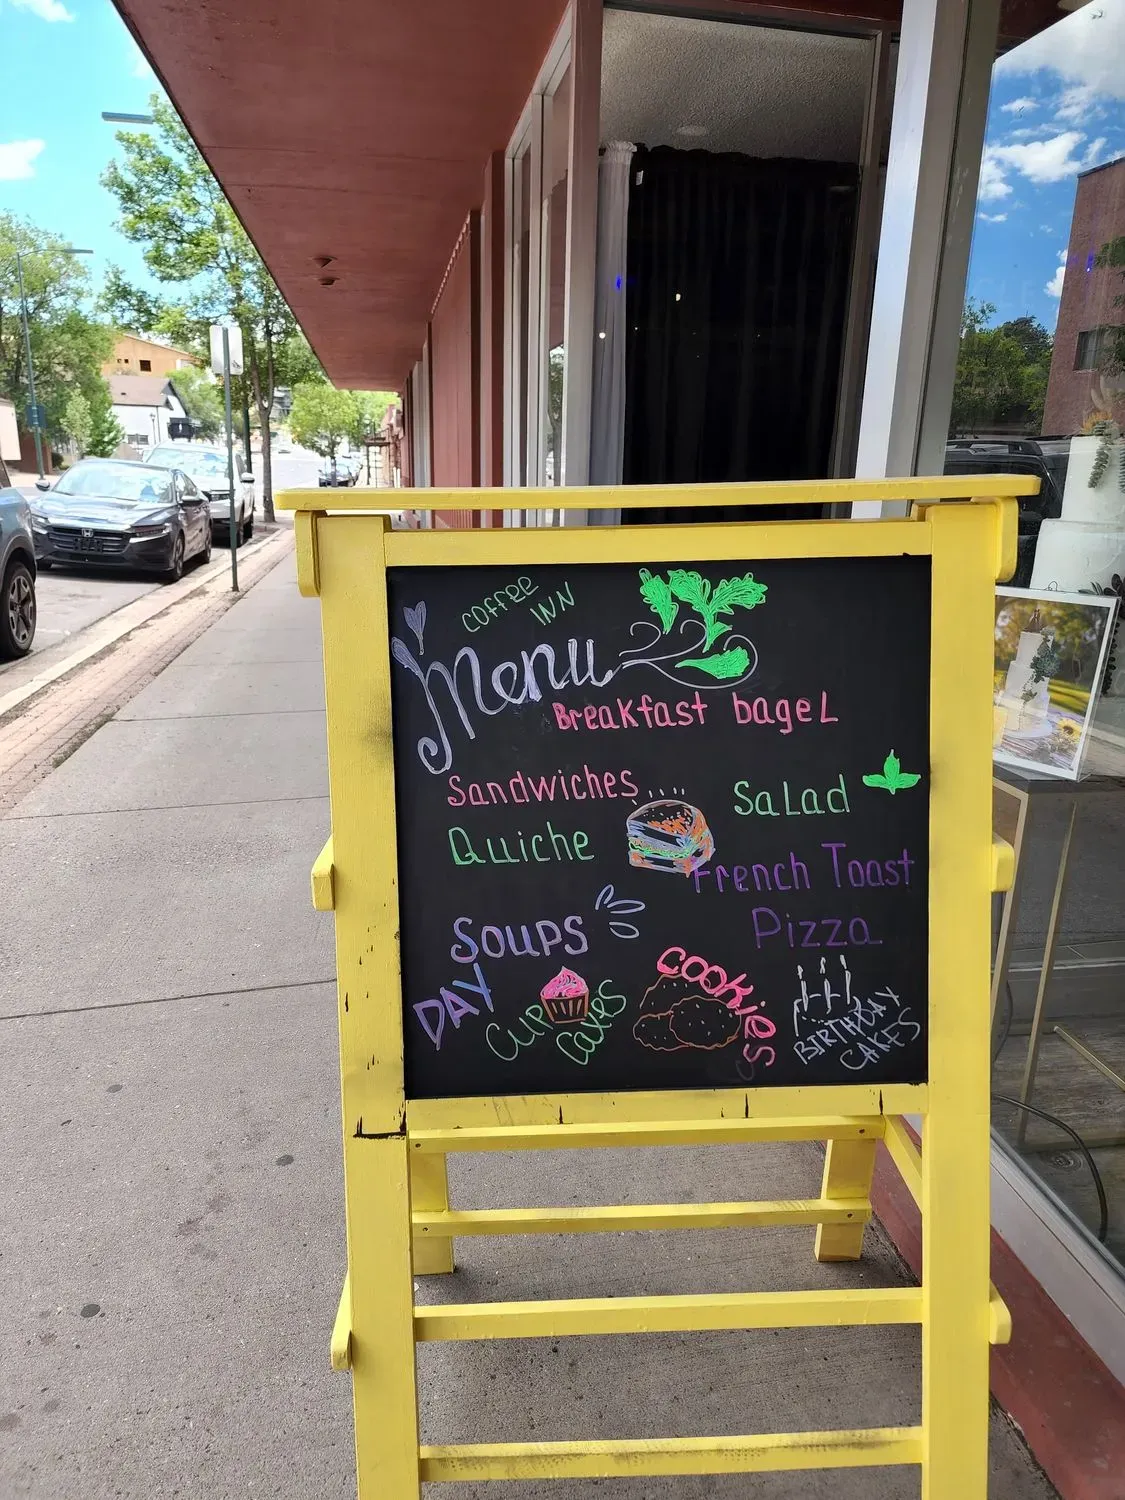 COFFEE
INN
Menu
Breakfast bagel
Sandwiches
Salad
Quiche
French Toast
Soups
Pizza
DAY
CUP
Cakes
COOKiES
BIRTHDAY
CAKES